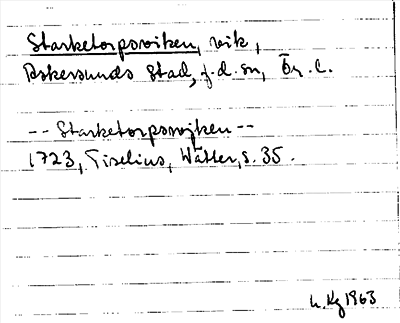 Starketorpsviken, vik,
Askersunds stad, f.d. sn, Ör. l.
-- Starketorpswjken --
1723, Tiselius, Wätter, s. 35.
L. Kg 1963